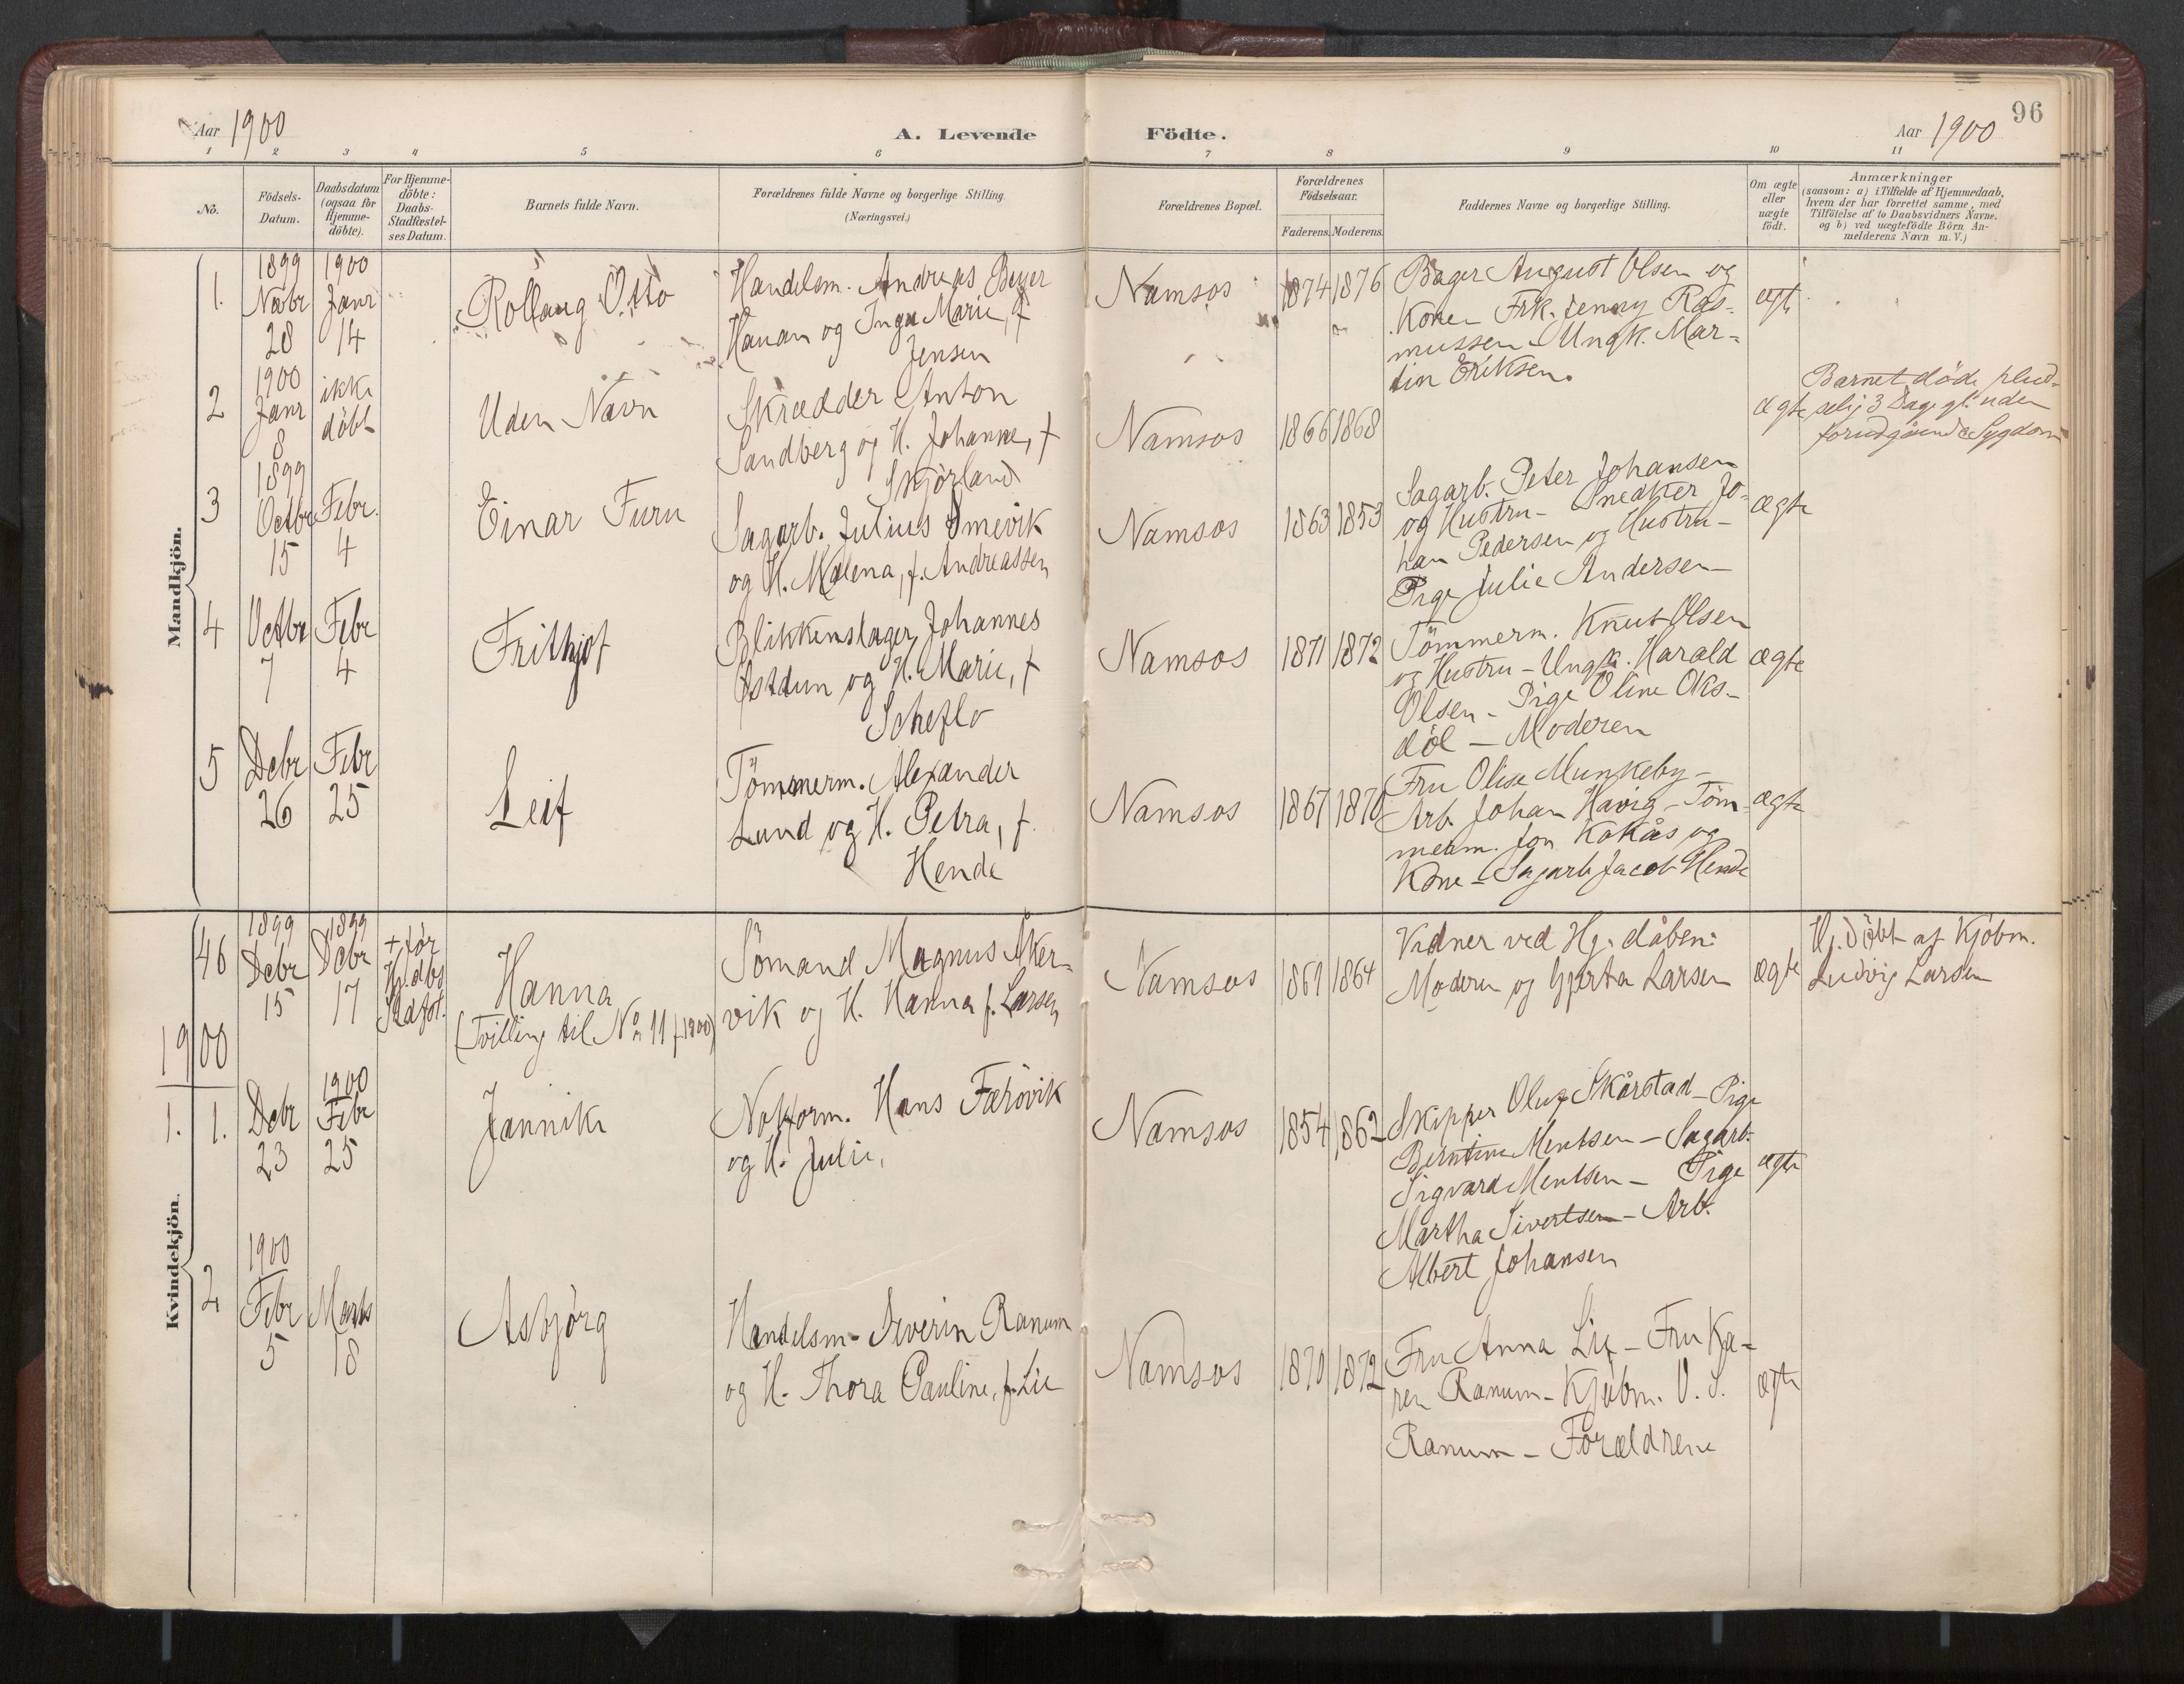 96
Aar 1900 A. Levende Födte. Aar 1900
1 2 3 4 5 6 7 8 9 10 11
No.
Födsels-
Datum.
Daabsdatum
(ogsaa for
Hjemme-
döbte).
For Hjemme-
döbte:
Daabs-
Stadfæstel-
ses Datum.
Barnets fulde Navn.
Forældrenes fulde Navne og borgerlige Stilling.
(Næringsvei.)
Forældrenes Bopæl.
Forældrenes
Födselsaar.
Faderens. Moderens.
Faddernes Navne og borgerlige Stilling.
Om ægte
eller
uægte
födt.
Anmærkninger
(saasom: a) i Tilfælde af Hjemmedaab,
hvem der har forrettet samme, med
Tilföielse af to Daabsvidners Navne,
og b) ved uægtefödte Börn An-
melderens Navn m. V.)
Mandkjön.
1.
1899
Novbr
28
1900
Janr
14
Rollaug Otto
Handelsm. Andreas Beyer
Hanan og Inga Marie, f
Jensen
Namsos
1874 1876
Bager August Olsen og
Kone - Frk. Jenny Ras-
mussen - Ungk. Mar-
tin Eriksen.
ægte
2
1900
Janr
8
ikke
döbt
Uden Navn
Skrædder Anton
Sandberg og H. Johanne, f
Skjørland
Namsos
1866 1868
ægte
Barnet döde plud-
selig 3 Dage gl. uden
forudgående Sygdom
3
1899
Octbr
15
Febr.
4
Einar Furu
Sagarb. Julius Smevik
og H. Malena, f. Andreassen
Namsos
1863 1853
Sagarb. Peter Johansen
og Hustru - Snedker Jo-
han Pedersen og Hustru -
Pige Julie Andersen -
ægte
4
Octbr
7
Febr
4
Frithjof
Blikkenslager Johannes
Østdun og H. Marie, f
Scheflo
Namsos
1871 1872
Tömmerm. Knut Olsen
og Hustru - Ungk. Harald
Olsen - Pige Oline Oks-
döl - Moderen
ægte
5
Debr
26
Febr
25
Leif
Tömmerm. Alexander
Lund og H. Petra, f.
Hende
Namsos
1867 1870
Fru Olise Munkeby -
Arb. Johan Havig - Töm-
merm. Jon Kokås og
Kone - Sagarb Jacob Hende
ægte
Kvindekjön.
46
1899
Debr
15
1899
Debr
17
+ før
Hj.dbs
Stadfst.
Hanna
(Tvilling til No 11 f 1900)
Sömand Magnus Åker-
vik og H. Hanna f. Larsen
Namsos
1861 1864
Vidner ved Hj. dåben:
Moderen og Gjerta Larsen
ægte
Hj. döbt af Kjöbm.
Ludvig Larsen
1900
1. 1.
Debr
23
1900
Febr
25
Jannike
Notform. Hans Færövik
og H. Julie,
Namsos
1854 1862
Skipper Oluf Skårstad - Pige
Berntine Mentsen - Sagarb.
Sigvard Mentsen - Pige
Martha Sivertsen - Arb.
Albert Johansen
ægte
2
1900
Febr
5
Marts
18
Asbjörg
Handelsm. Severin Ranum
og H. Thora Pauline, f. Lie
Namsos
1870 1872
Fru Anna Lie - Fru Ka-
ren Ranum - Kjöbm. O. S.
Ranum - Forældrene
ægte